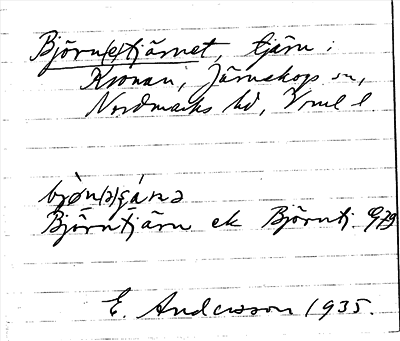 Björn(e)tjärnet, tjärn i
Kronan, Järnskogs sn,
Nordmarks hd, Vrml l.
Björntjärn ek Björntj.
E. Andersson 1935.